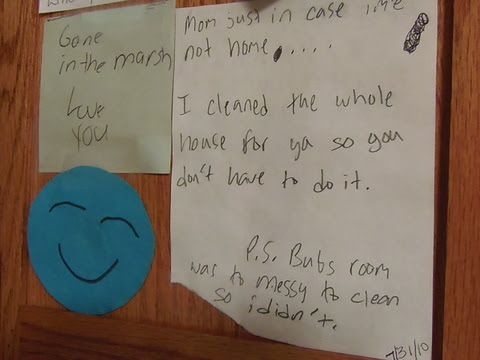 Gone
in the marsh
Love
you
Mom just in case im
not home,....
I cleaned the whole
house for ya so you
don't have to do it.
P.S. Bubs room
was to messy to clean
so i didn't.
7/31/10